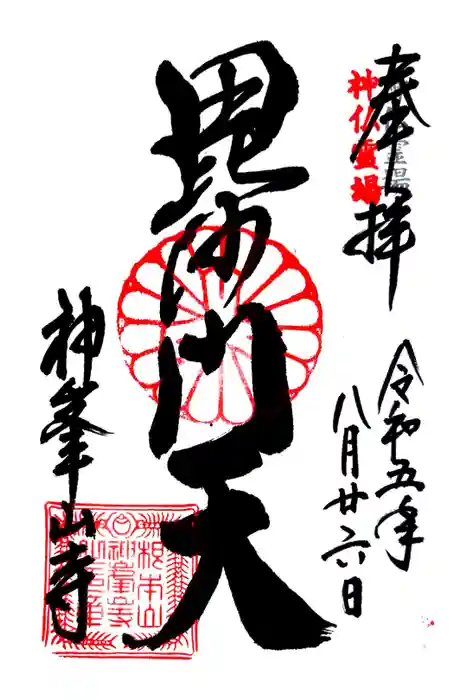 奉拝
神仏霊場
令和五年
八月廿六日
毘沙門天
神峯山寺
根本山
神峯山寺